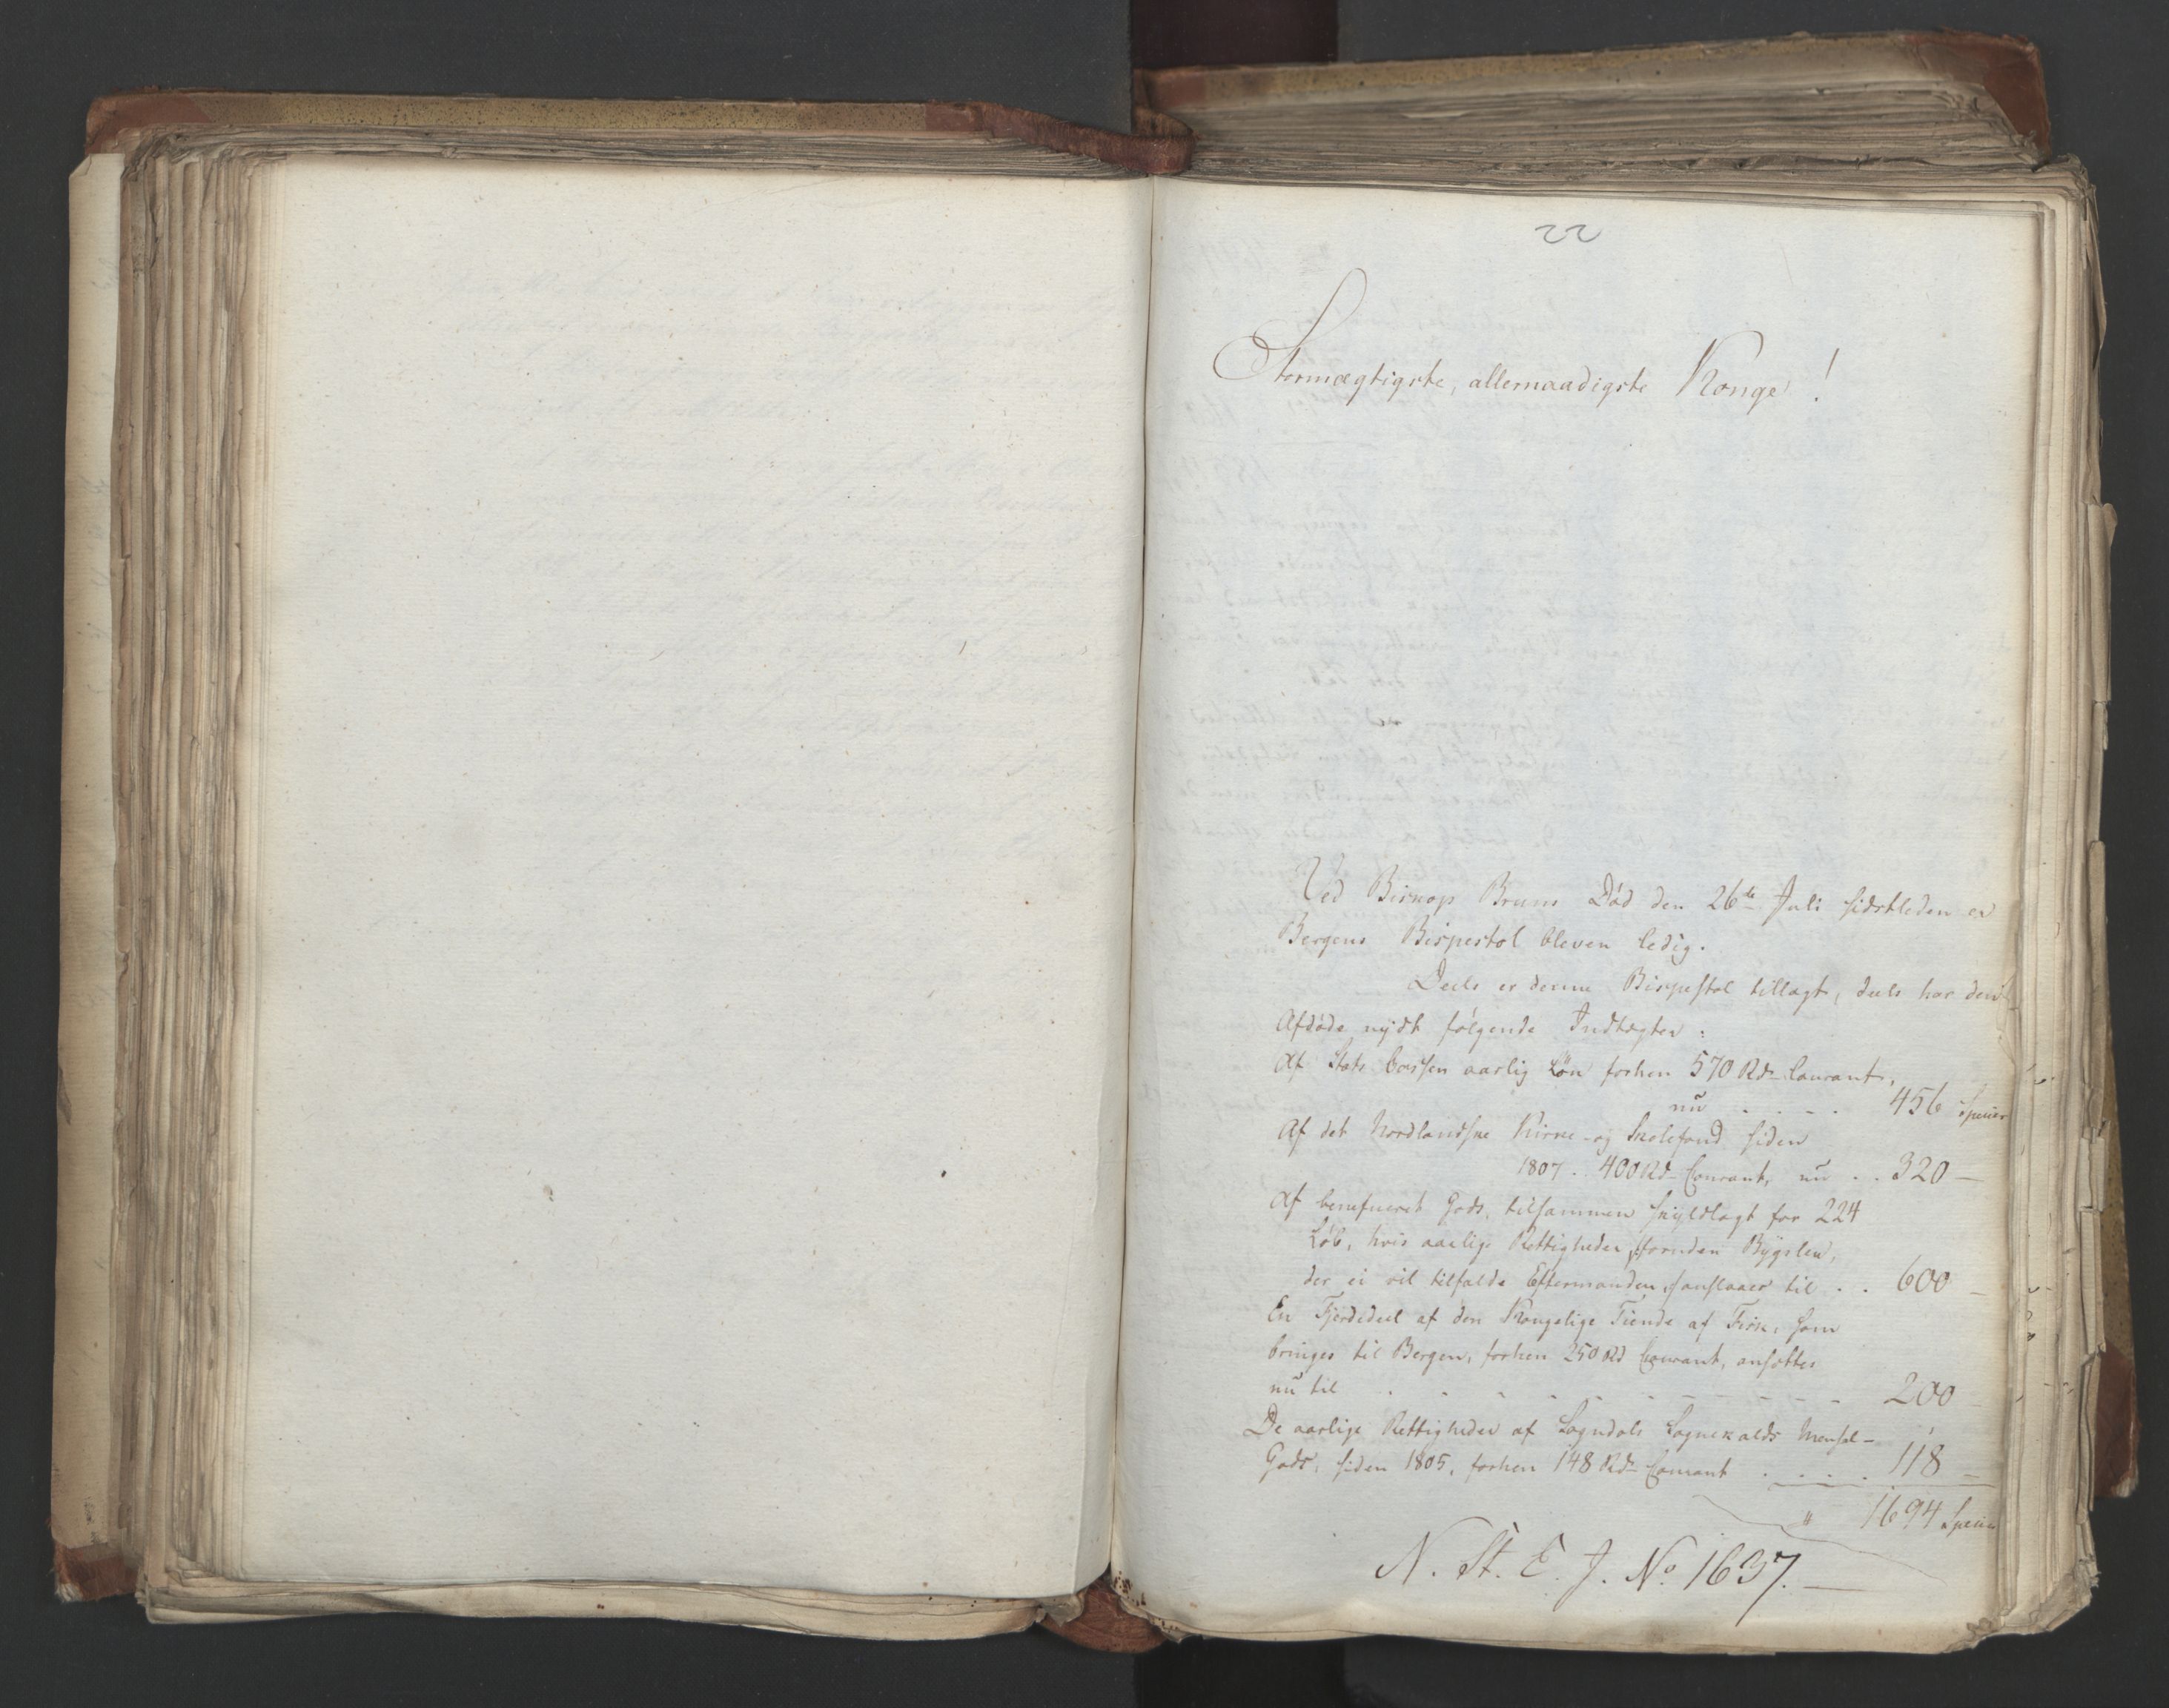 22
Stormægtigste, allernaadigste Konge!
Ved Biskop Bruns Død den 26de Juli sidstleden er
Bergens Bispestol bleven ledig.
Deels er denne Bispestol tillagt, deels har den
Afdøde nydt følgende Indtægter:
Af Stats Cassen aarlig Løn forhen 570 Rdr Courant,
nu . . . . 456 Species
Af det Nordlandske Kirke- og Skolefond siden
1807 . . 400 Rd Courant, nu . . 320 —
Af beneficeret Gods, tilsammen skyldlagt for 224
Løb, hvis aarlige Rettigheder, foruden Bygslen,
der ei vil tilfalde Eftermanden, anslaaes til . . 600 —
En Fjerdedeel af den Kongelige Tiende af Fisk, som
bringes til Bergen, forhen 250 Rd Courant, ansættes
nu til . . . . . . . . . . 200
De aarlige Rettigheder af Sogndals Sognekalds Mensal-
Gods, siden 1805, forhen 148 Rdr Courant . . . . 118 —
" 1694 Species
N. St. E. J. No 1637. —